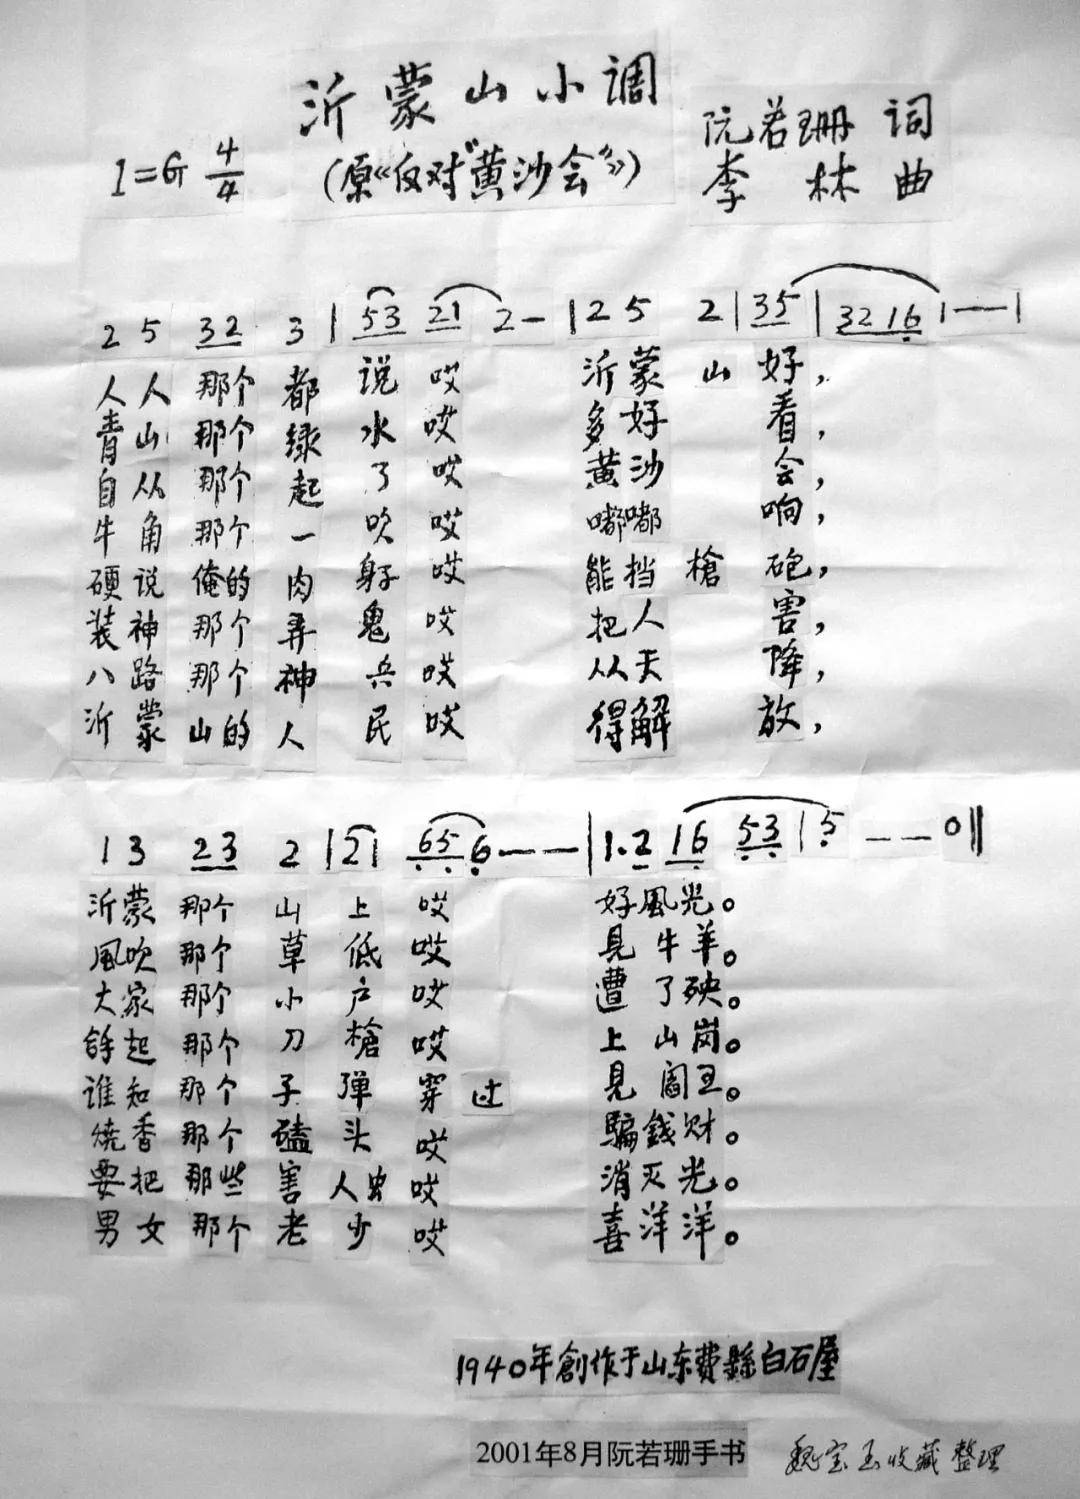 沂蒙山小调
(原《反对"黄沙会"》)
1=G 4/4
阮若珊 词
李林 曲
2 5 32 3 | 53 21 2— | 2 5 2 | 35 | 32 16 1—— |
人人 那个 都 说 哎 沂蒙 山 好,
青山 那个 绿 水 哎 多好 看,
自从 那个 起 了 哎 黄沙 会,
牛角 那个 一 吹 哎 嘟嘟 响,
硬说 俺的 肉 身子 哎 能挡 槍 砲,
装神 那个 弄 鬼 哎 把人 害,
八路 那个 神 兵 哎 从天 降,
沂蒙 山的 人 民 哎 得解 放,
1 3 23 2 | 21 65 6—— | 1.2 16 53 | 5 —— 0 ‖
沂蒙 那个 山 上 哎 好風光。
風吹 那个 草 低 哎 見牛羊。
大家 那个 小 户 哎 遭了殃。
拿起 那个 刀 槍 哎 上山岗。
谁知 那个 子 弹 穿 过 見閻王。
燒香 那个 磕 头 哎 騙錢财。
要把 那些 害 人虫 哎 消灭光。
男女 那个 老 少 哎 喜洋洋。
1940年創作于山东費縣白石屋
2001年8月阮若珊手书
魏宝玉收藏整理